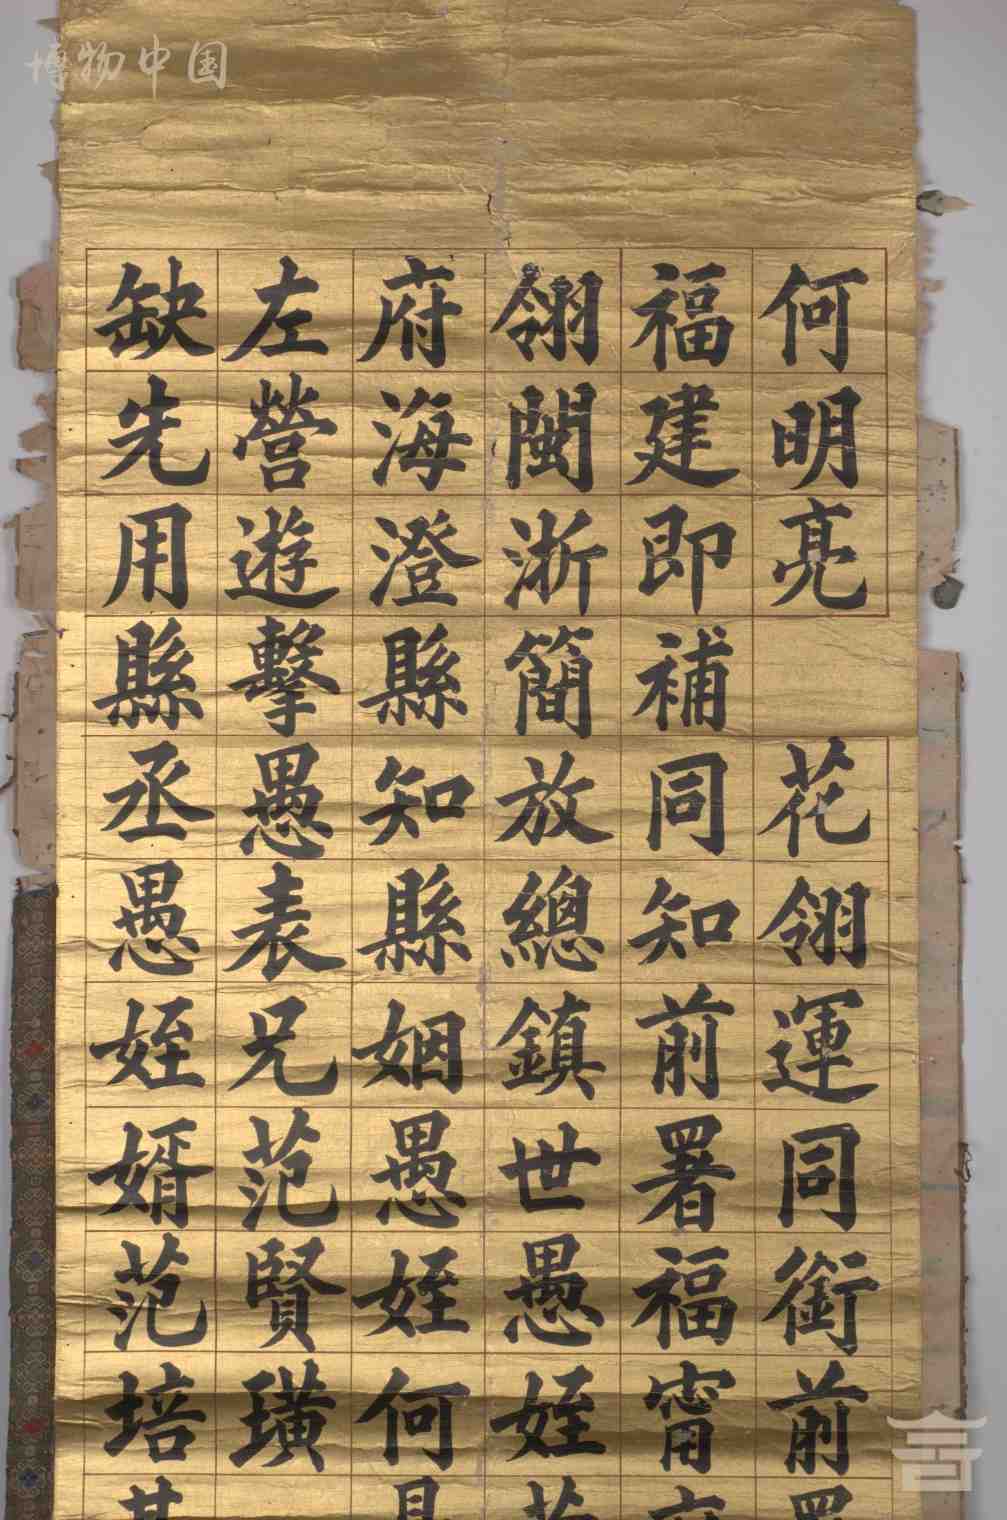 博物中国
何明亮 花翎運同銜前
福建即補同知前署福甯
翎閩浙簡放總鎮世愚姪
府海澄縣知縣姻愚姪何
左營遊擊愚表兄范賢璜
缺先用縣丞愚姪婿范培